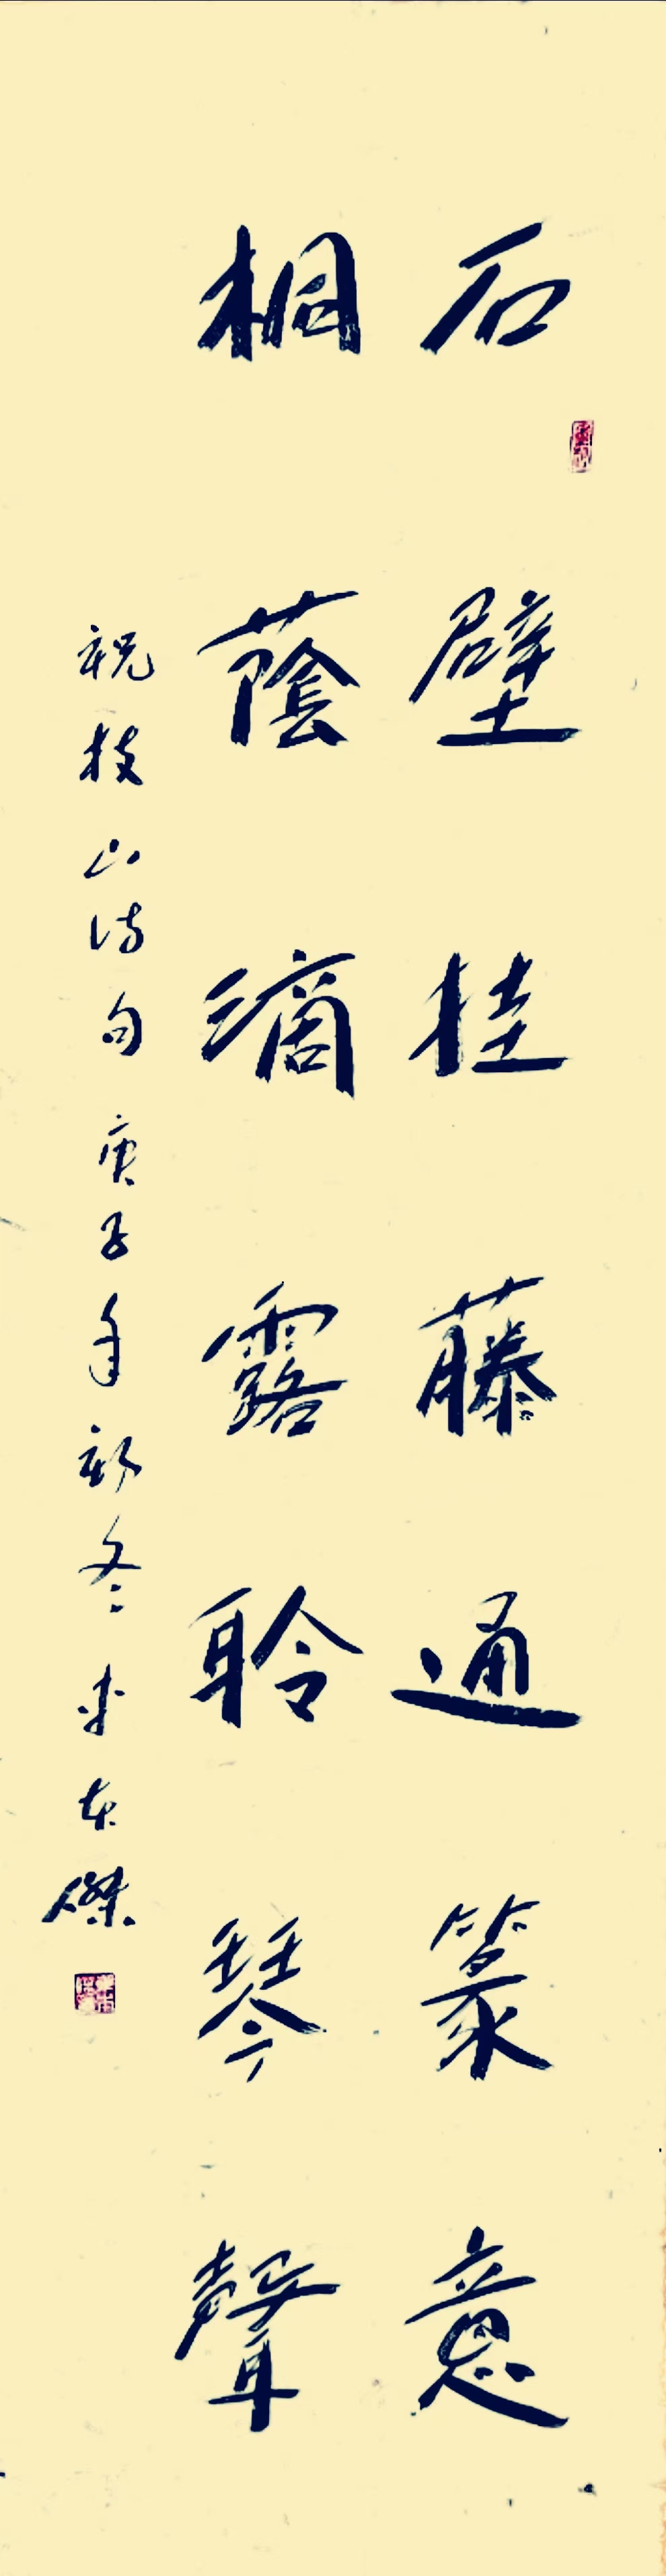 石壁挂藤通篆意
桐蔭滴露聆琴聲
祝枝山詩句庚子年初冬宋東傑